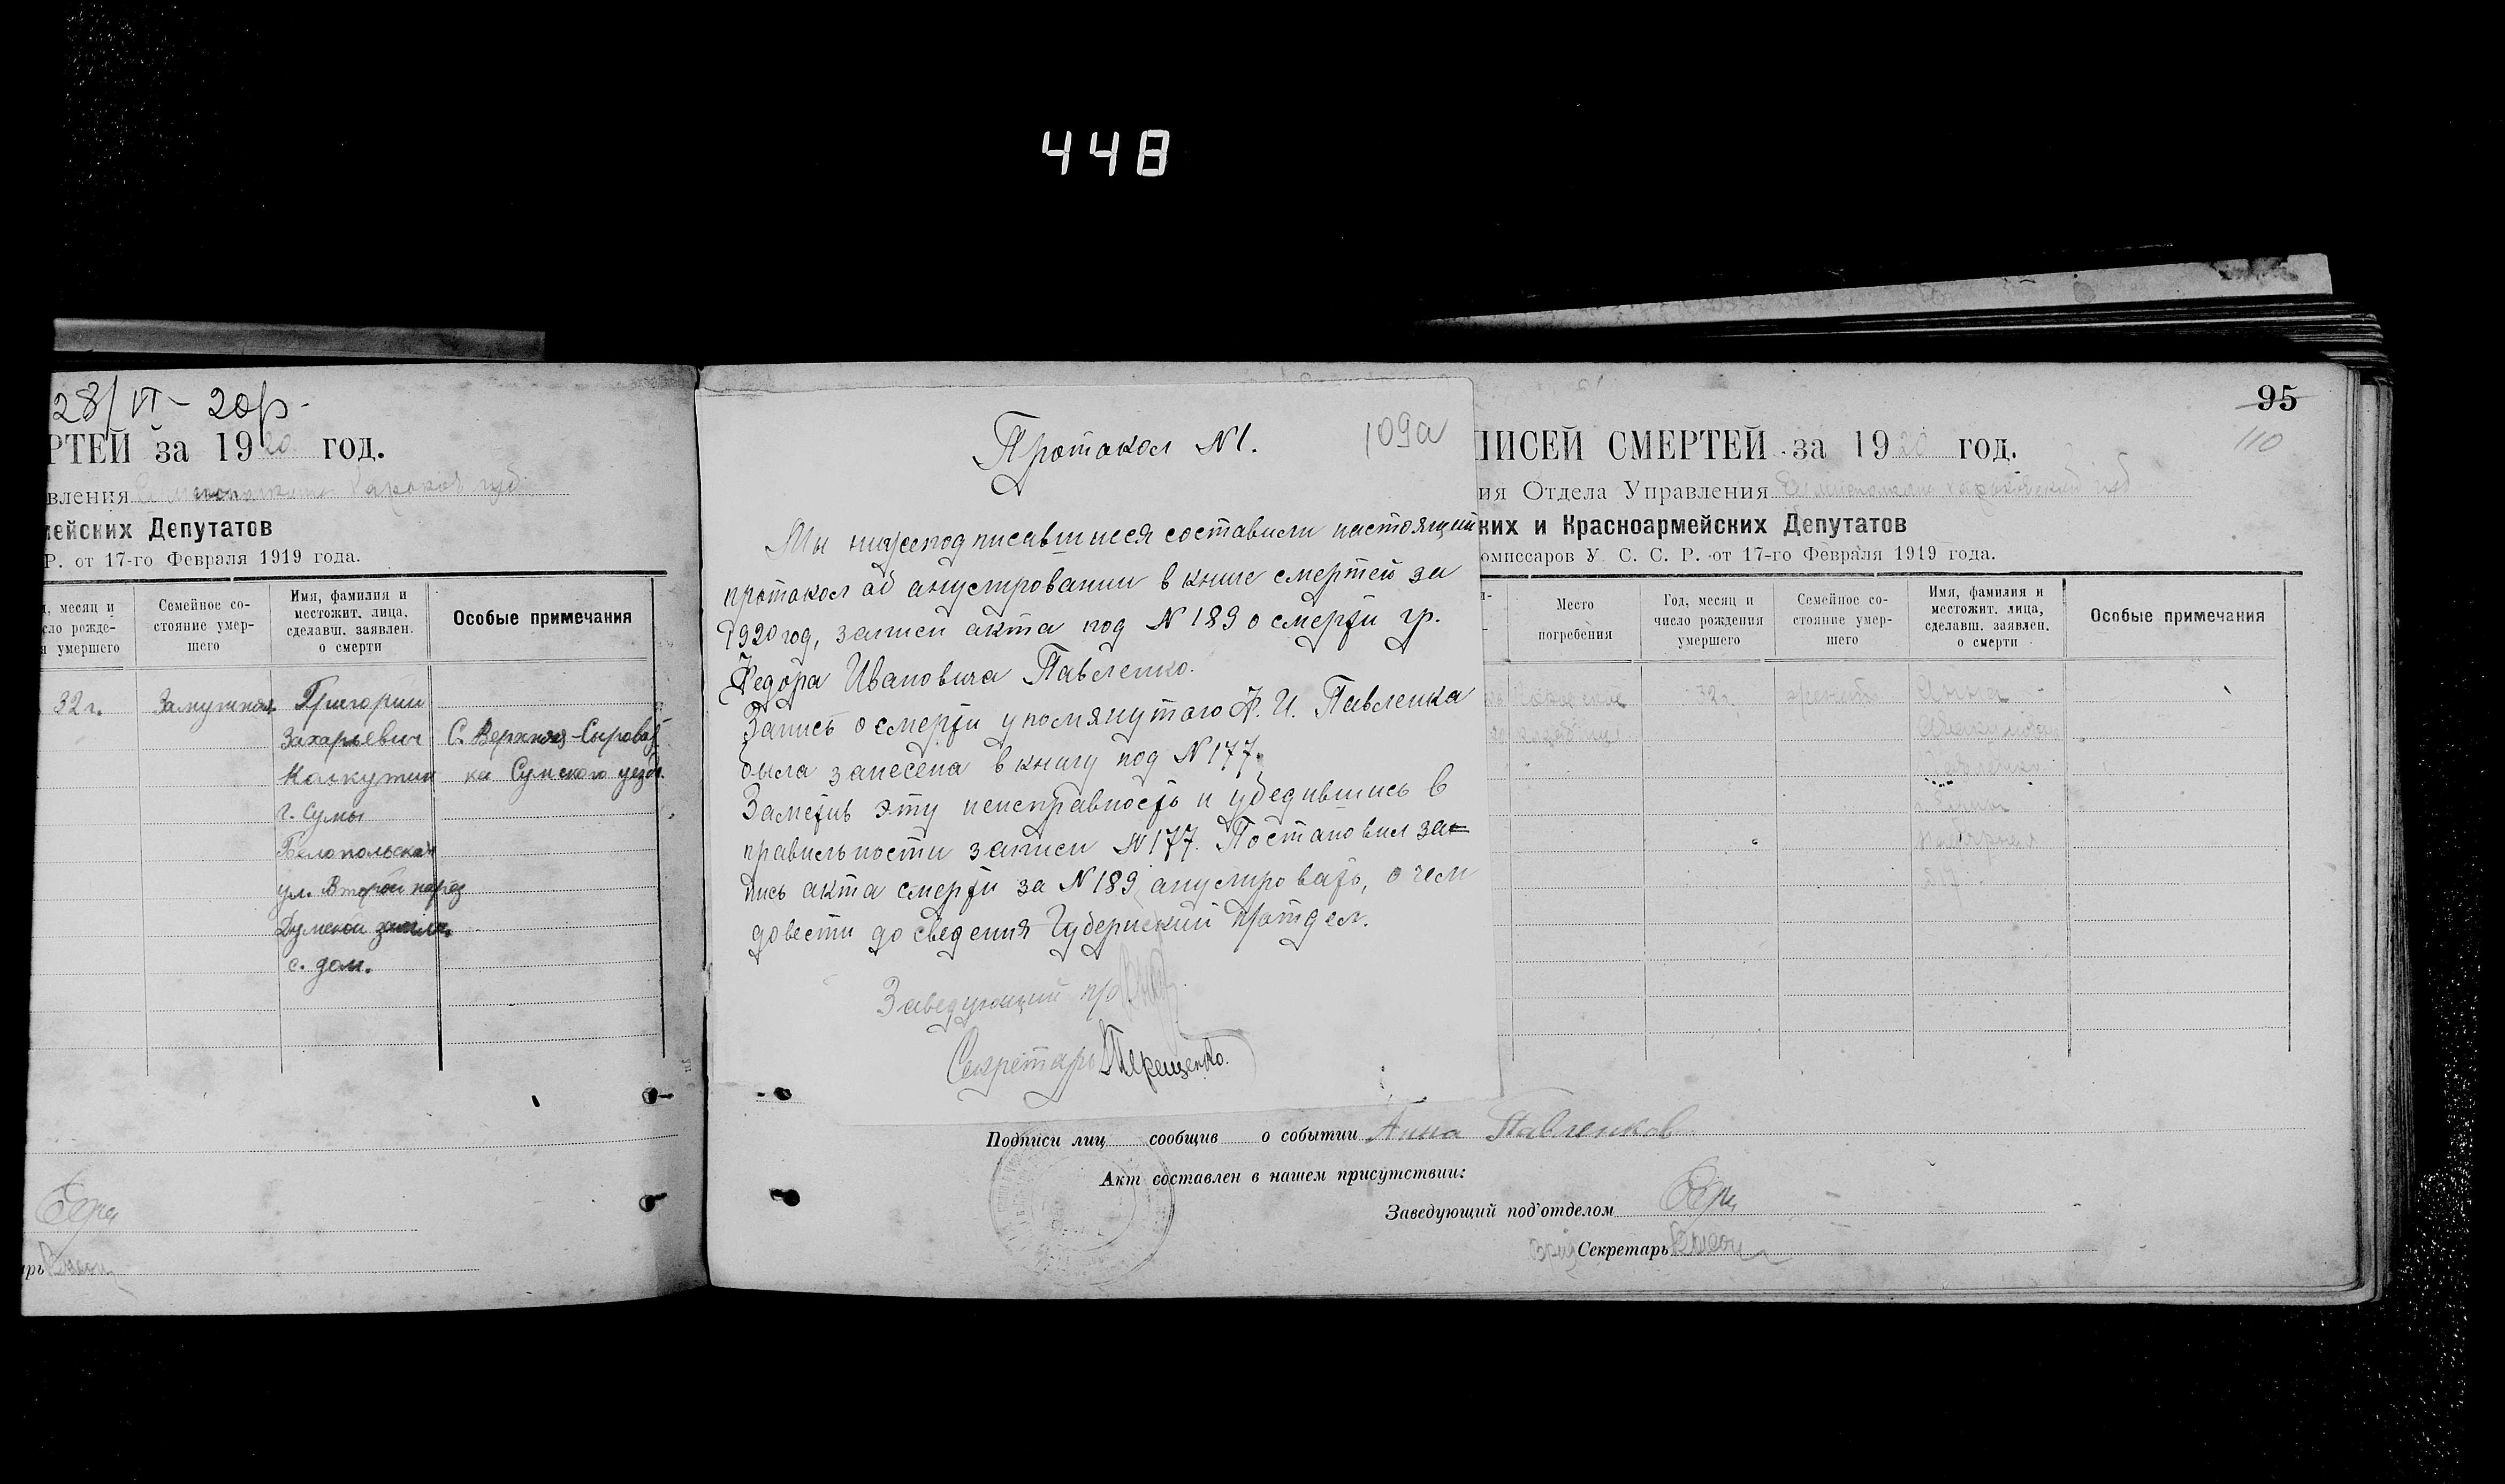 448
28/VI - 20р.
РТЕЙ за 1920 год.
вления
мейских Депутатов
Р. от 17-го Февраля 1919 года.
, месяц и
сло рожде-
я умершего
Семейное со-
стояние умер-
шего
Имя, фамилия и
местожит. лица,
сделавш. заявлен.
о смерти
Особые примечания
32 г.
Замужняя
Григорий
Захарьевич
г. Сумы
Белопольская
ул. Второй
с. дом.
С. Верхняя-Сыроват
ка Сумского уезд.
Протокол №1.
109а
Мы нижеподписавшиеся составили настоящий
протокол об анулировании в книге смертей за
1920 год, записи акта под №189 о смерти гр.
Федора Ивановича Павленко.
Запись о смерти упомянутого Ф. И. Павленка
была занесена в книгу под №177.
Заметив эту неисправность и убедившись в
правильности записи №177. Постановил за-
пись акта смерти за №189 анулировать, о чем
довести до сведения Губернский п/отдел.
Заведующий п/о
Секретарь Терещенко.
95
110
ПИСЕЙ СМЕРТЕЙ за 1920 год.
ия Отдела Управления
ких и Красноармейских Депутатов
омиссаров У. С. С. Р. от 17-го Февраля 1919 года.
Место
погребения
Год, месяц и
число рождения
умершего
Семейное со-
стояние умер-
шего
Имя, фамилия и
местожит. лица,
сделавш. заявлен.
о смерти
Особые примечания
32 г.
женат
Анна
Подписи лиц сообщив о событии Анна Павленков
Акт составлен в нашем присутствии:
Заведующий под'отделом
Секретарь